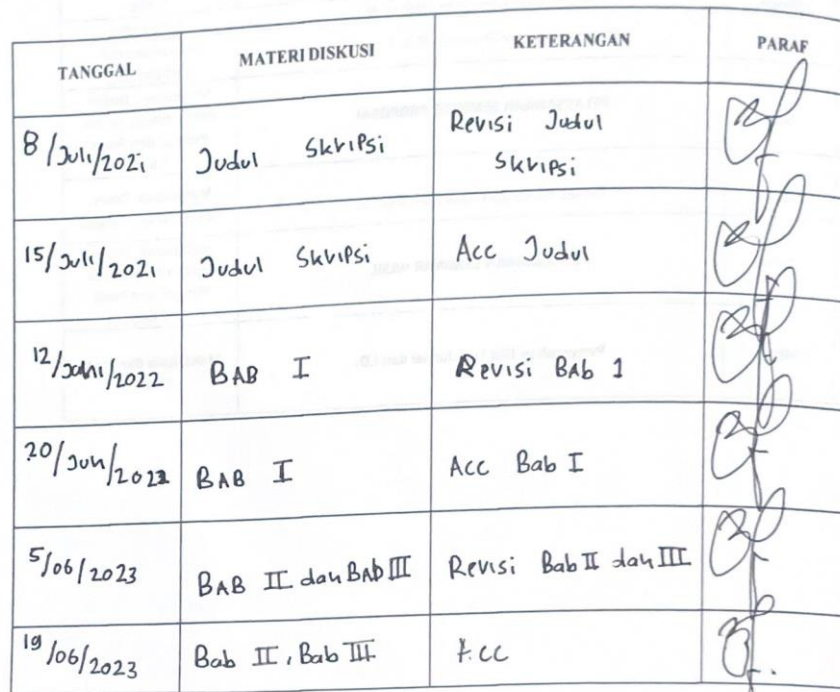 TANGGAL MATERI DISKUSI KETERANGAN PARAF
8/Juli/2021 Judul Skripsi Revisi Judul
Skripsi
15/Juli/2021 Judul Skripsi Acc Judul
12/Juni/2022 BAB I Revisi BAb 1
20/Jun/2022 BAB I Acc Bab I
5/06/2023 BAB II dan BAB III Revisi Bab II dan III
19/06/2023 Bab II, Bab III Acc